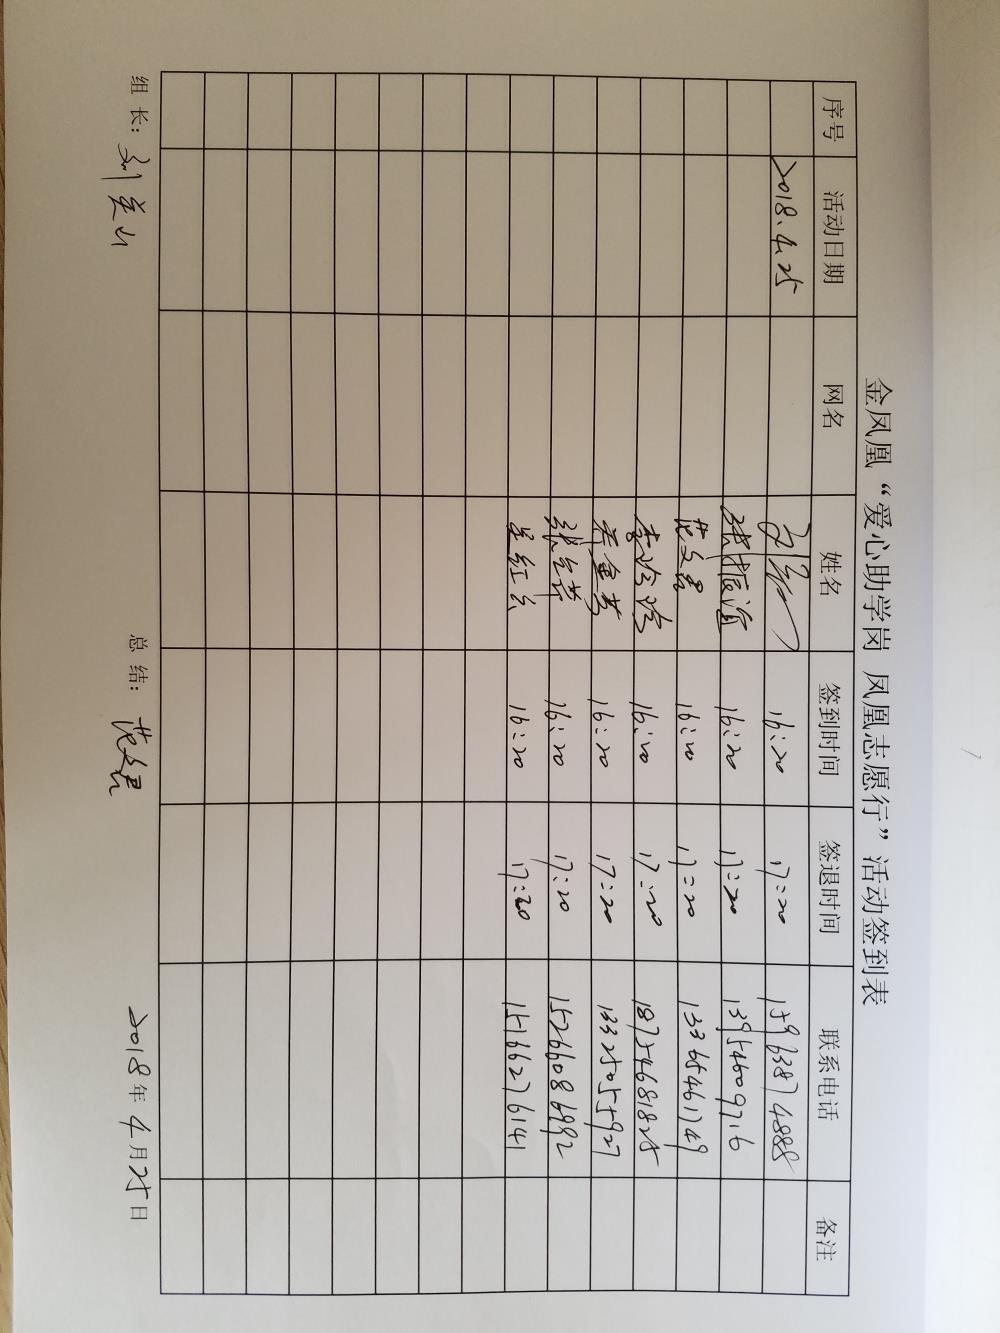 金凤凰“爱心助学岗 凤凰志愿行”活动签到表
序号 活动日期 网名 姓名 签到时间 签退时间 联系电话 备注
2018.4.25 16:20 17:20 15963874888
张振谊 16:20 17:20 13954609716
范文君 16:20 17:20 13365461749
李玲玲 16:20 17:20 18754681825
16:20 17:20 13325055927
16:20 17:20 15266086992
吴红云 16:20 17:20 15166276141
组 长: 刘美山 总 结: 范文君 2018年4月25日